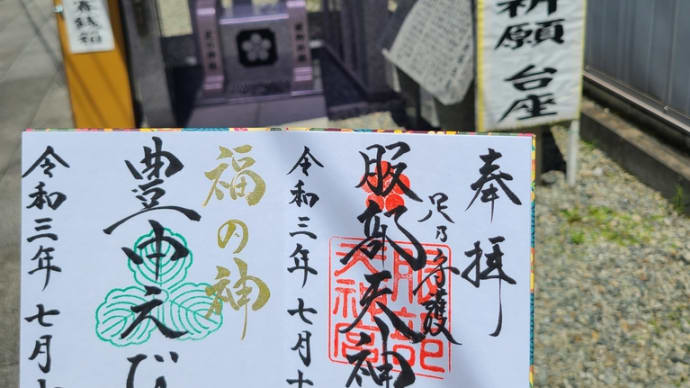 賽銭箱
祈願
台座
奉拝
足乃守護
服部天神
服部
天神宮
令和三年七月十
福の神
豊中えび
令和三年七月